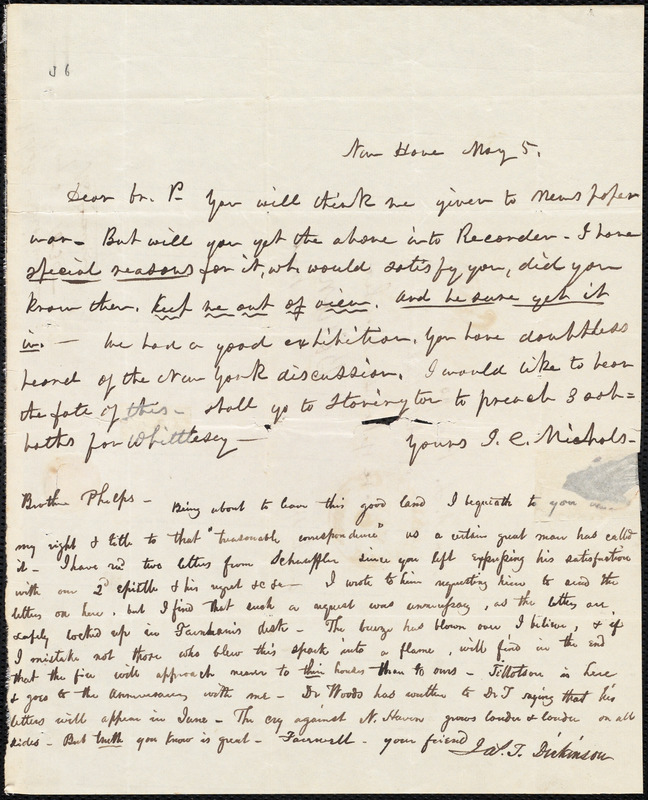 J 6
New Have May 5.
Dear br. P— You will think me given to newspaper
war— But will you get the above into Recorder— I have
special reasons for it, wh. would satisfy you, did you
know them. Keep me out of view. And be sure get it
in.— We had a good exhibition. You have doubtless
heard of the New York discussion. I would like to hear
the fate of this— shall go to Stonington to preach 3 sab=
baths for Whittlesey—
Yours J. C. Nichols—
Brother Phelps— Being about to leave this good land I bequeath to you
my right & title to that "treasonable correspondence" as a certain great man has called
it— I have recd two letters from Schauffler since you left expressing his satisfaction
with our 2d epistle & his regret &c &c— I wrote to him requesting him to send the
letters on here, but I find that such a request was unnecessary, as the letters are
safely locked up in Farnham's desk— The breeze has blown over I believe, & if
I mistake not those who blew this spark into a flame, will find in the end
that the fire will approach nearer to their houses than to ours— Tillotson is here
& goes to the Anniversaries with me— Dr Woods has written to Dr T saying that his
letters will appear in June— The cry against N. Haven grows louder & louder on all
sides— But truth you know is great— Farewell— your friend
Jas. T. Dickinson